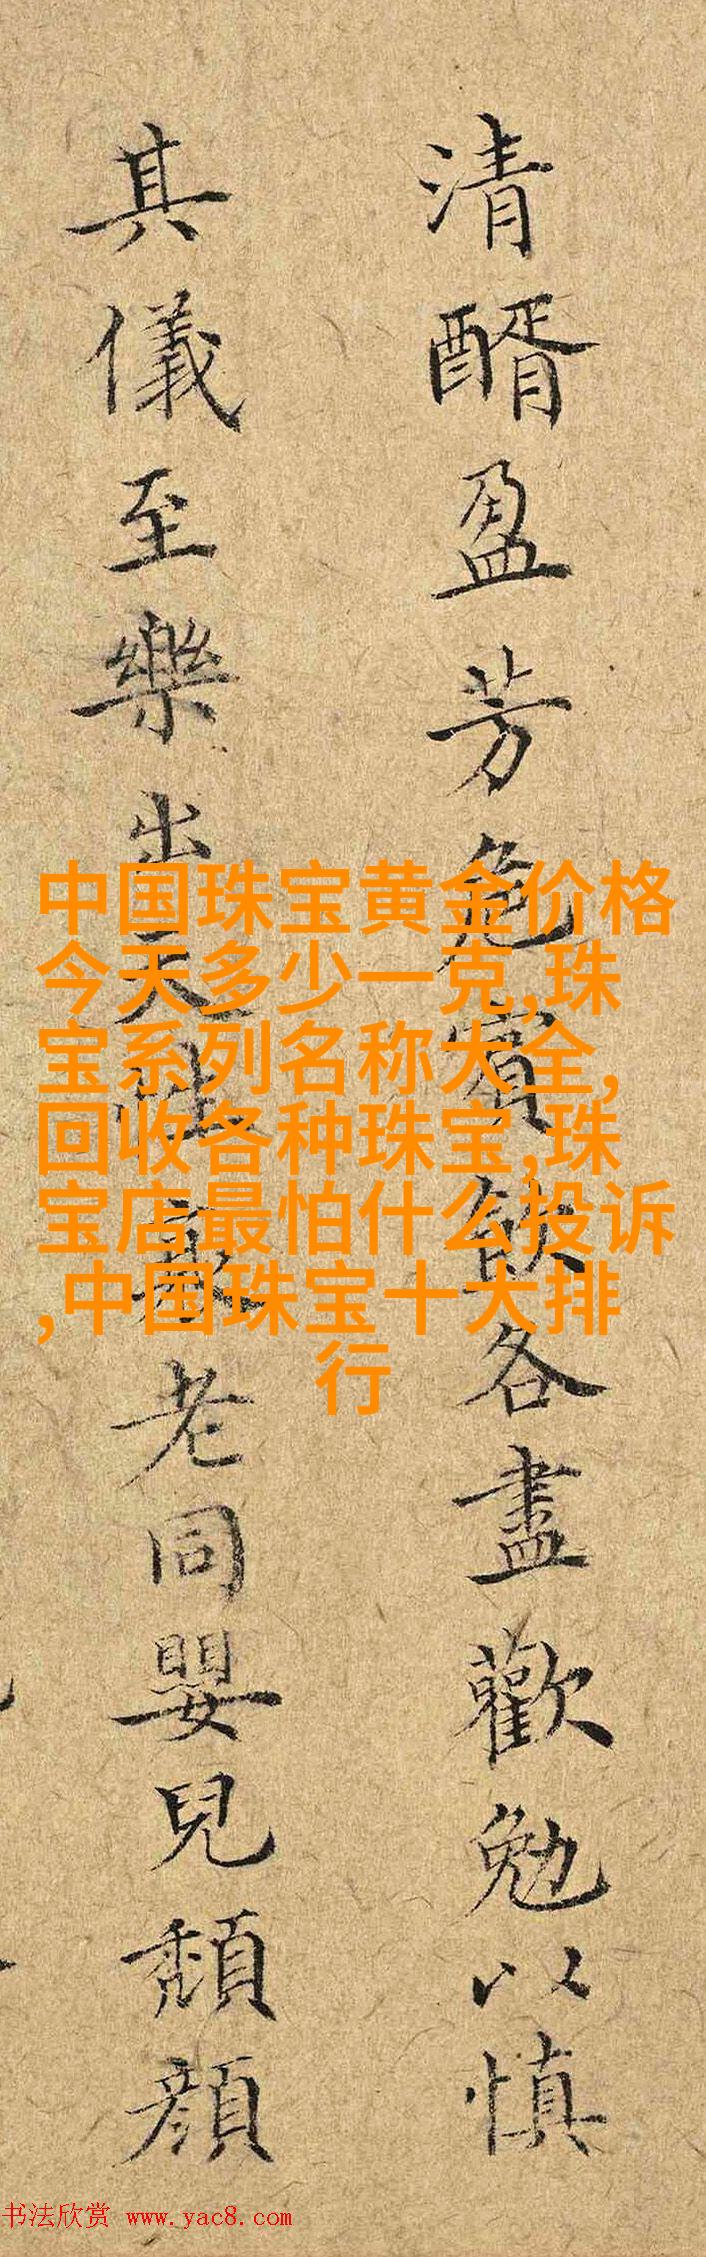 清醑盈芳卮賓飲各盡歡勉以慎
其儀至樂出天性衰老同嬰兒頳顔
中国珠宝黄金价格
今天多少一克,珠
宝系列名称大全,
回收各种珠宝,珠
宝店最怕什么投诉
,中国珠宝十大排
行
书法欣赏 www.yac8.com